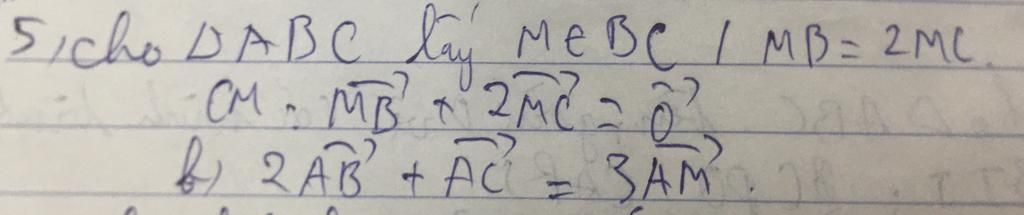 5, cho ΔABC lấy M∈BC / MB = 2MC.
CM: \overrightarrow{MB} + 2\overrightarrow{MC} = \overrightarrow{0}
b) 2\overrightarrow{AB} + \overrightarrow{AC} = 3\overrightarrow{AM}.